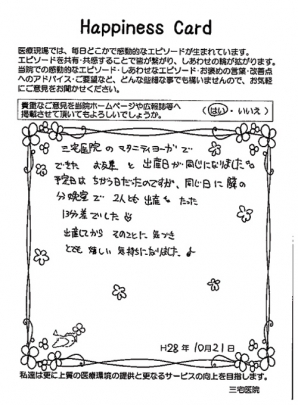 Happiness Card
医療現場では、毎日どこかで感動的なエピソードが生まれています。
エピソードを共有・共感することで皆が繋がり、しあわせの輪が拡がります。
当院での感動的なエピソード・しあわせなエピソード・お褒めの言葉・改善点
へのアドバイス・ご要望など、どんな些細な事でも構いませんので、お気軽
にご意見をお聞かせください。
貴重なご意見を当院ホームページや広報誌等へ
掲載させて頂いてもよろしいでしょうか。
(はい・いいえ)
三宅医院の マタニティヨーガで
できた お友達 と 出産日が同じになりました。
予定日は ちがう日だったのですが、同じ日に 隣の
分娩室で 2人とも出産 たった
13分差でした
出産してから そのことに 気づき
とても 嬉しい 気持ちになりました♪
H28年10月21日
私達は更に上質の医療環境の提供と更なるサービスの向上を目指します。
三宅医院